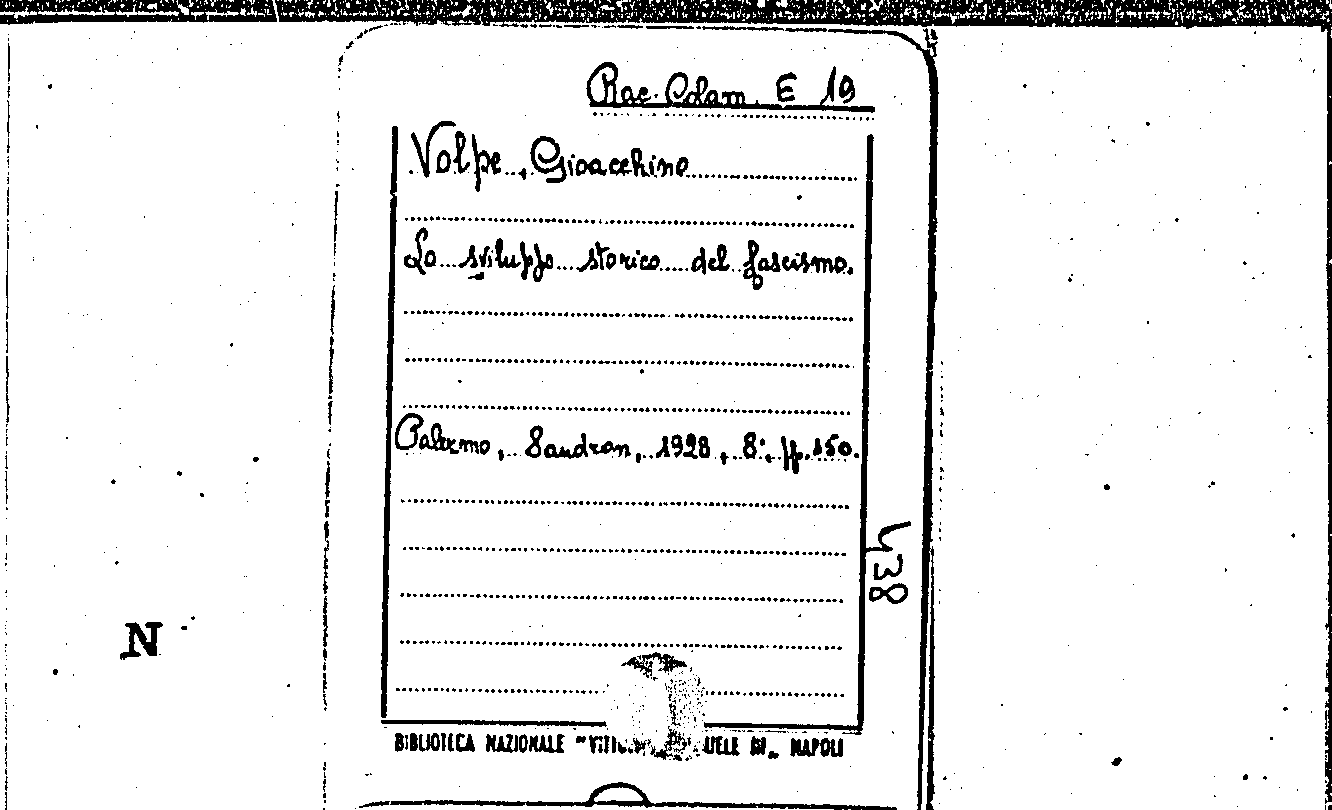 Rac. Colam. E 19
Volpe, Gioacchino
Lo sviluppo storico del fascismo.
Palermo, Sandron, 1928, 8°, pp. 150.
438
N
BIBLIOTECA NAZIONALE "VITT UELE III„ NAPOLI